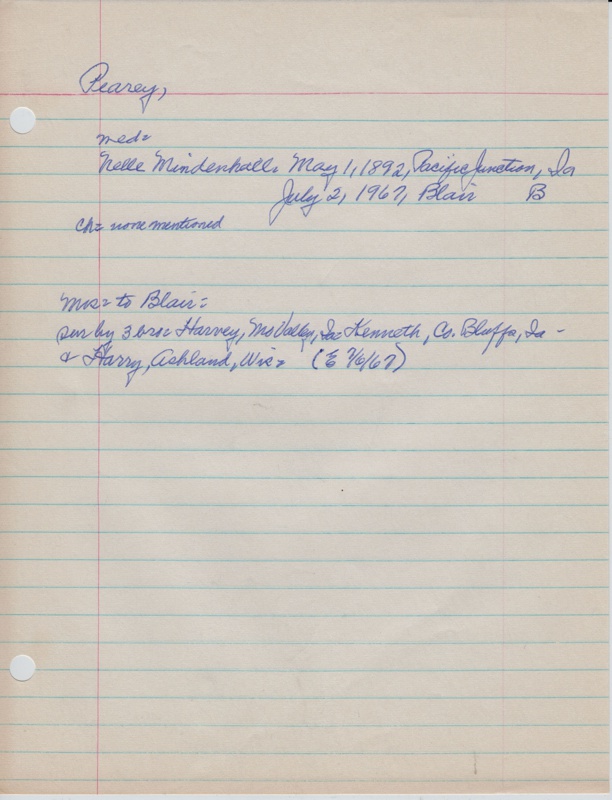 Pearey,
med=
Nelle Mindenhall= May 1, 1892, Pacific Junction, Ia
July 2, 1967, Blair B
ch= none mentioned
Mvs= to Blair=
sur by 3 bros= Harvey, Mo Valley, Ia= Kenneth, Co. Bluffs, Ia -
& Harry, Ashland, Wis= (E 7/6/67)